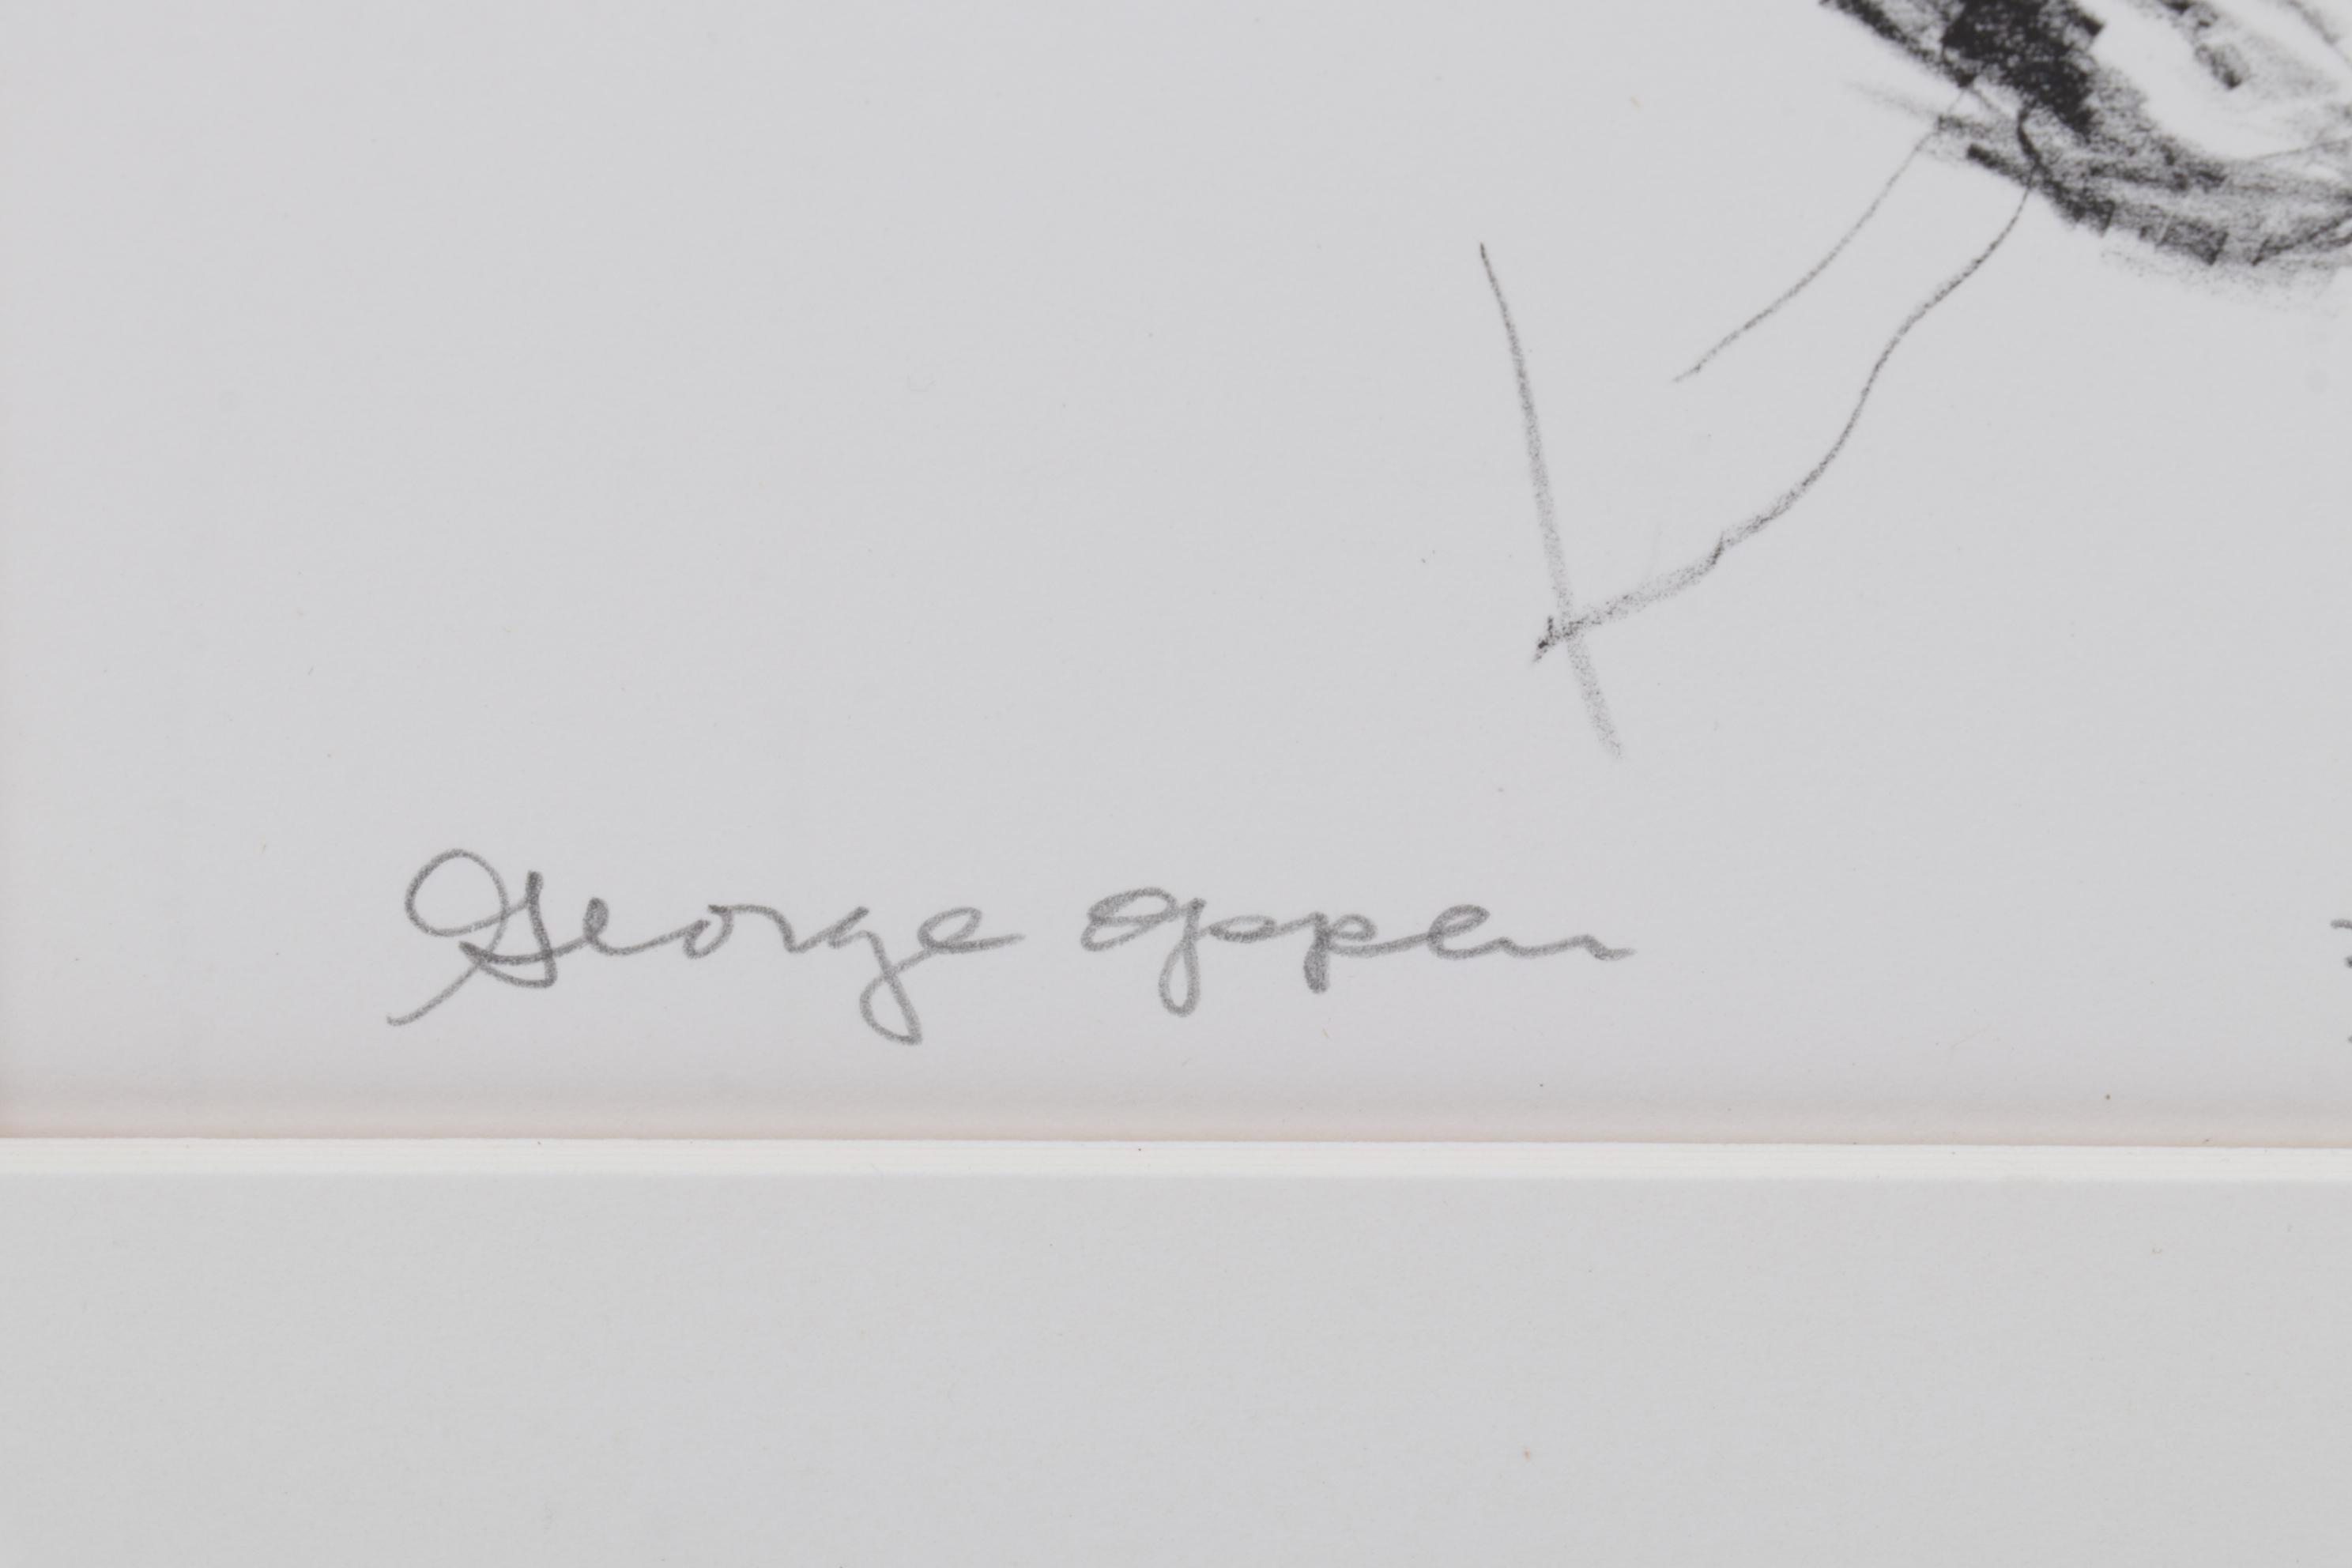 George Oppen